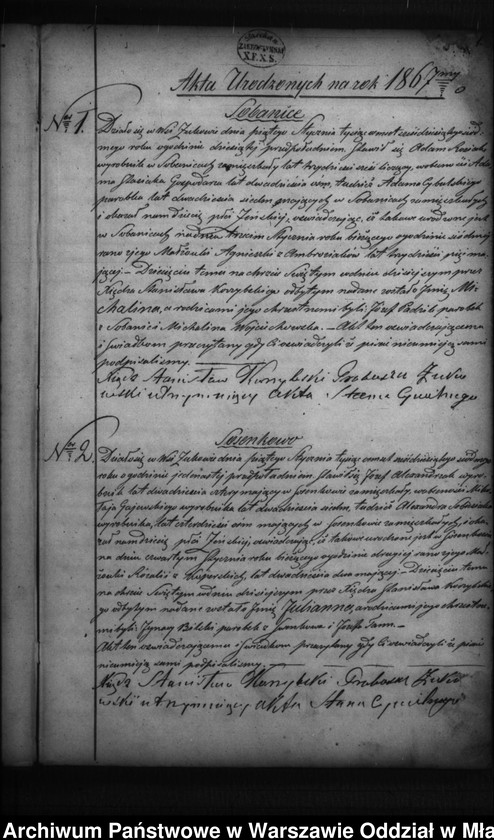 Akta Urodzonych na rok 1867
Sobanice
Nr 1.
Działo się w Wsi Żukowie dnia piątego Stycznia tysiąc ośmset sześćdziesiątego siód-
mego roku o godzinie dziesiątej przed południem. Stawił się Adam
wyrobnik w Sobanicach zamieszkały lat trzydzieści sześć liczący, w obecności Ada-
ma Gospodarza lat dwadzieścia ośm, tudzież Adama Cybulskiego
parobka lat dwadzieścia siedm mających w Sobanicach zamieszkałych
i okazał nam dziecię płci żeńskiej, oświadczając, iż takowe urodzone jest
w Sobanicach na dniu trzecim Stycznia roku bieżącego o godzinie siódmej
rano z jego Małżonki Agnieszki z Ambroziaków lat trzydzieści pięć ma-
jącej. — Dziecięciu temu na chrzcie Świętym w dniu dzisiejszym przez
Księdza Stanisława Korzybskiego odbytym nadane zostało Imię Mi-
chalina, a rodzicami jego chrzestnemi byli: Józef parobek
z Sobanic i Michalina Wojciechowska. — Akt ten oświadczającemu
i świadkom przeczytany gdy Ci oświadczyli iż pisać nieumieją sami
podpisaliśmy. —
Ksiądz Stanisław Korzybski Proboszcz Żuko
wski utrzymujący akta Stanu Cywilnego
Sosenkowo
Nr 2.
Działo się w Wsi Żukowie dnia piątego Stycznia tysiąc ośmset sześćdziesiątego siódmego
roku o godzinie jedenastej przed południem. Stawił się Józef Alexandrzak wyro-
bnik lat dwadzieścia cztery mający w Sosenkowie zamieszkały, w obecności Miko-
łaja Gajewskiego wyrobnika lat dwadzieścia siedm, tudzież Alexandra
wyrobnika, lat czterdzieści ośm mających w Sosenkowie zamieszkałych, i oka-
zał nam dziecię płci żeńskiej, oświadczając, iż takowe urodzone jest w Sosenkowie
na dniu czwartym Stycznia roku bieżącego o godzinie drugiej rano z jego Mał-
żonki Rozalii z Kujawskich, lat dwadzieścia dwa mającej. — Dziecięciu temu
na chrzcie Świętym w dniu dzisiejszym przez Księdza Stanisława Korzybskie-
go odbytym nadane zostało Imię Julianna, a rodzicami jego chrzestne-
mi byli: Ignacy Bilski parobek z i Józefa
Akt ten oświadczającemu i świadkom przeczytany gdy Ci oświadczyli iż pisać
nieumieją sami podpisaliśmy. —
Ksiądz Stanisław Korzybski Proboszcz Żuko
wski utrzymujący akta Stanu Cywilnego
Archiwum Państwowe w Warszawie Oddział w Mła